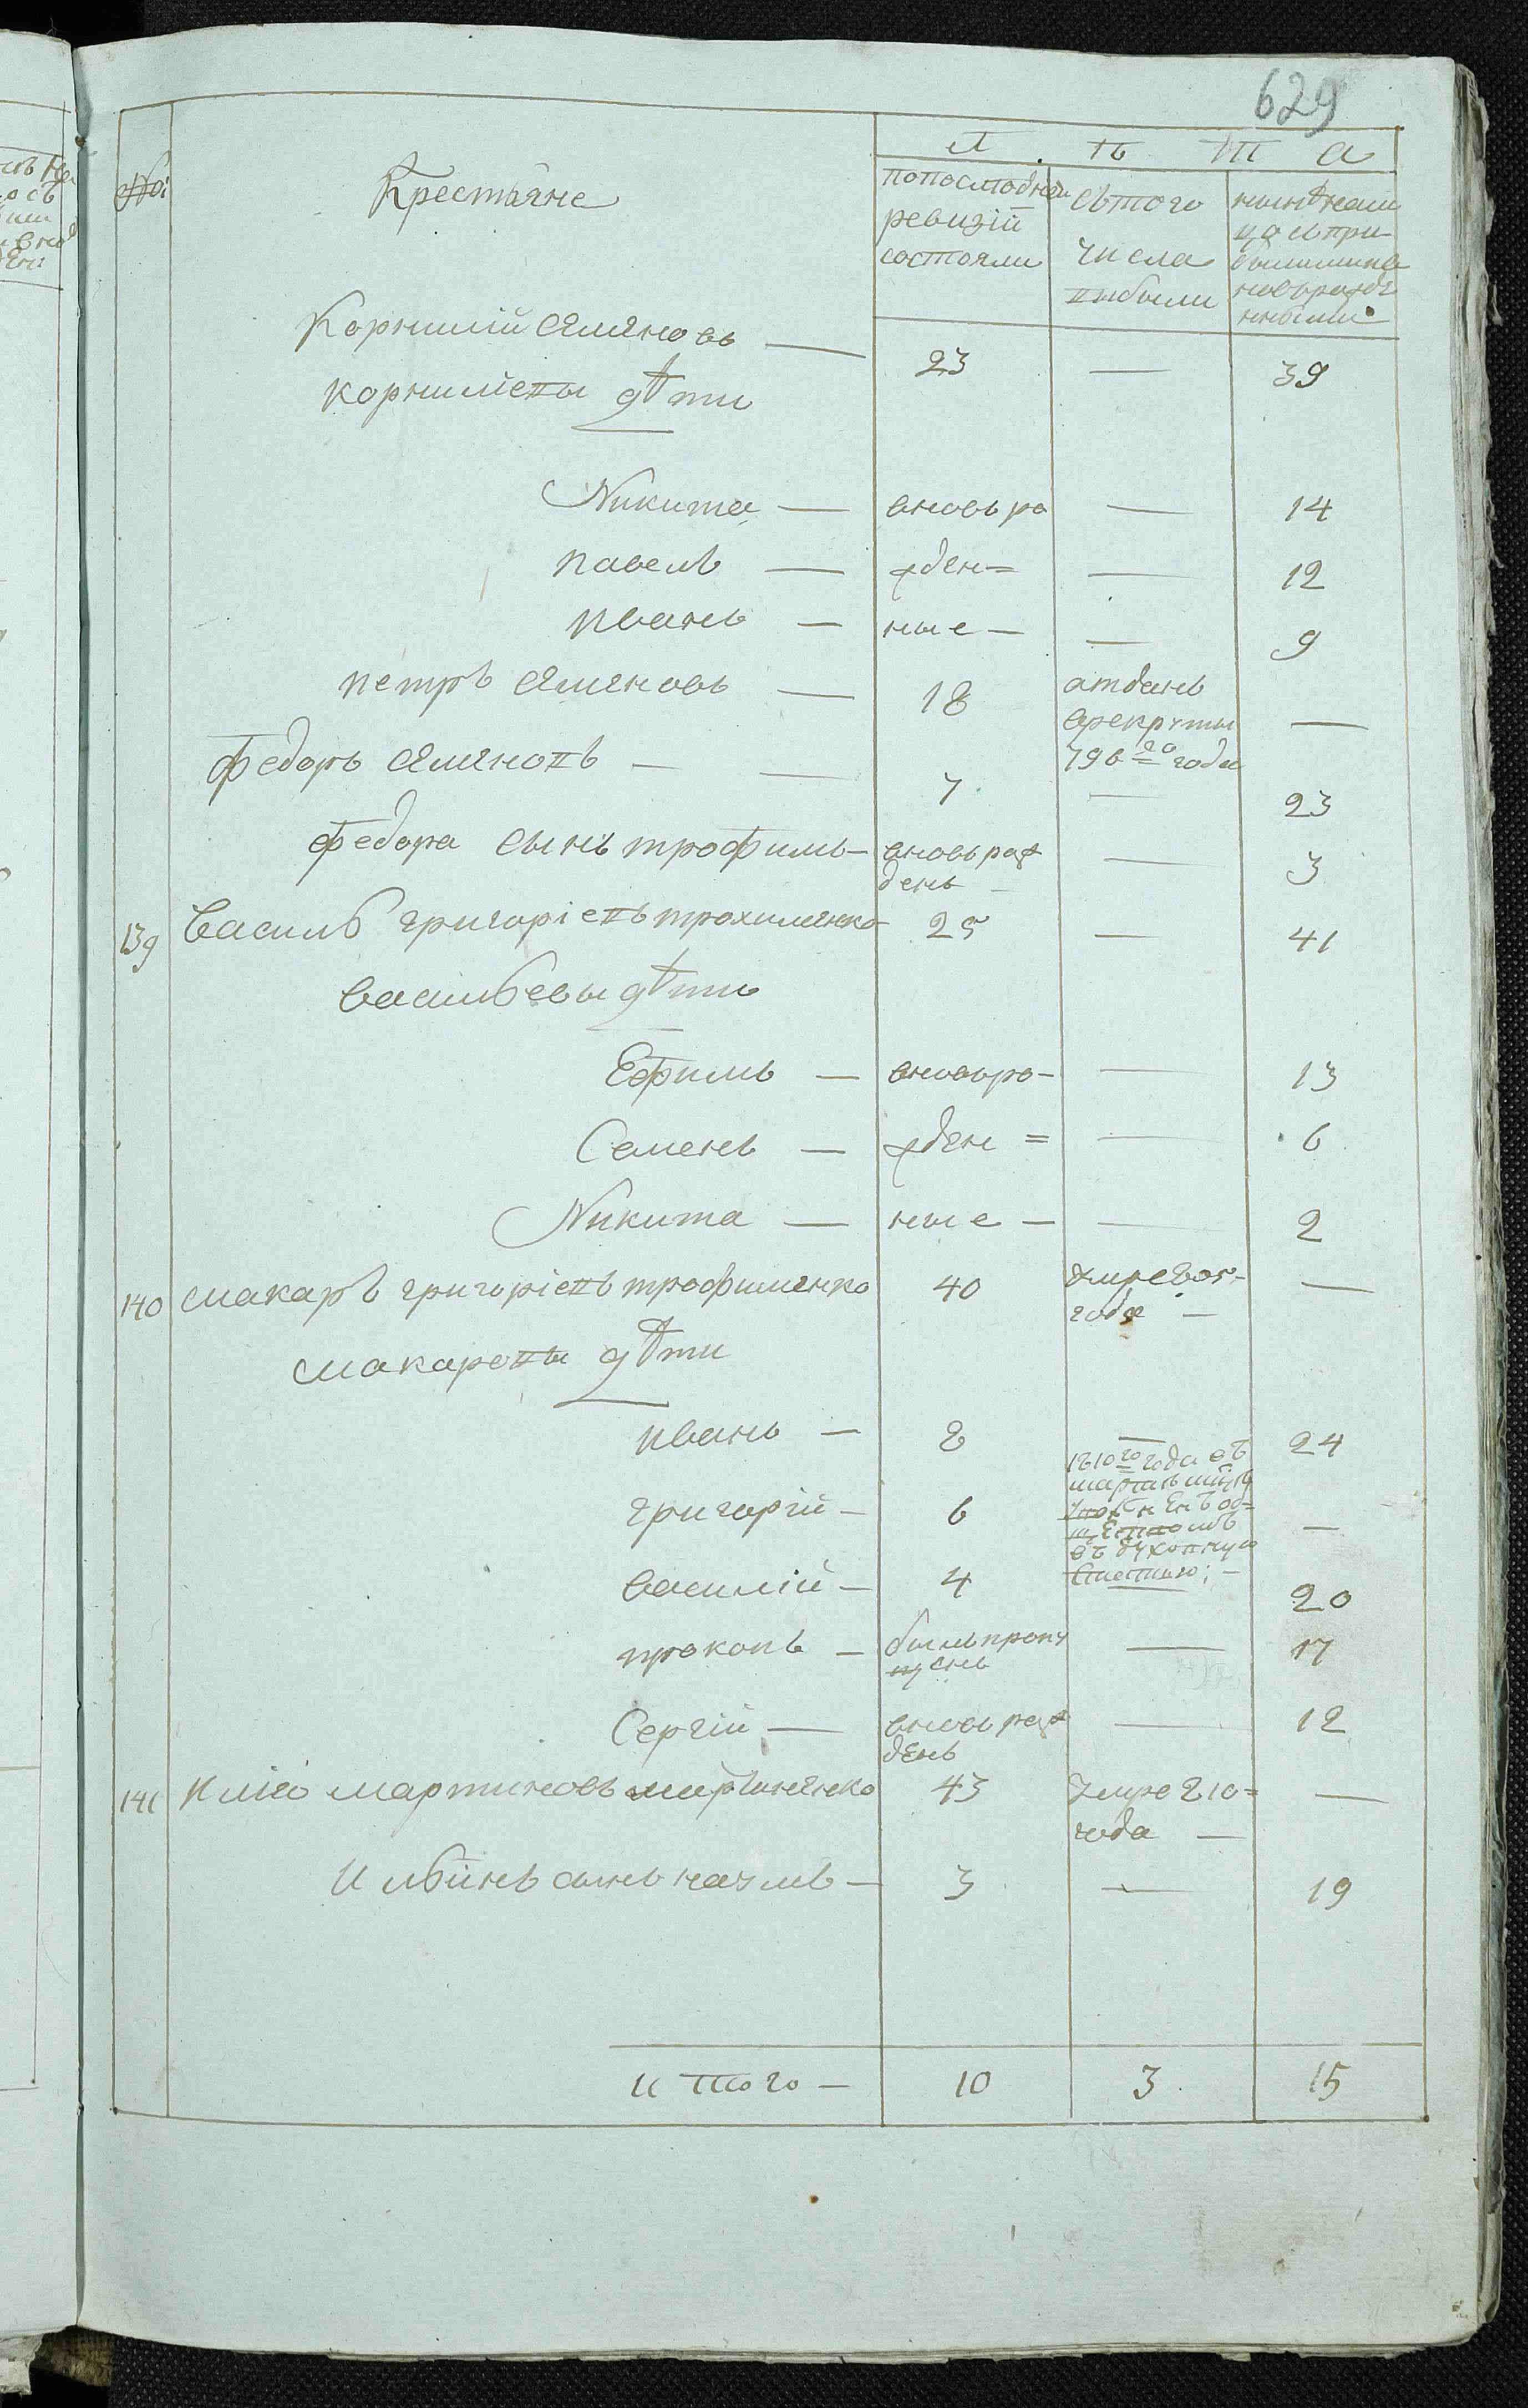 629
№
Крестьяне
Л ѣ т а
попоследней ревизій состояли
стого числа выбыли
нынѣналицо съприбылыми новорожденными
Корнилій Емяновъ — 23 — 39
корниліевы дѣти
Никита — вновь ро — 14
павелъ — жден= — 12
иванъ — ные — — 9
петръ Емяновъ — 18 отданъ врекруты 796го года —
федоръ Емяновъ — 7 — 23
федора сынъ трофимъ — вновь рожденъ — 3
139 Василь григоріевъ трохименко 25 — 41
васильевы дѣти
Ефимъ — вновь ро- — 13
Семенъ — жден= — 6
Никита — ные — — 2
140 макаръ григоріевъ трофименко 40 умре 805- года — —
макаровы дѣти
иванъ — 8 — 24
григорій — 6 1810го года въ обществомъ въ духовную —
василій — 4 20
прокопъ — былъ пропущенъ — 17
Сергій — вновь рожденъ — 12
141 илія мартиновъ мартиненко 43 умре 810= года — —
ильинъ сынъ наумъ — 3 — 19
итого — 10 3 15